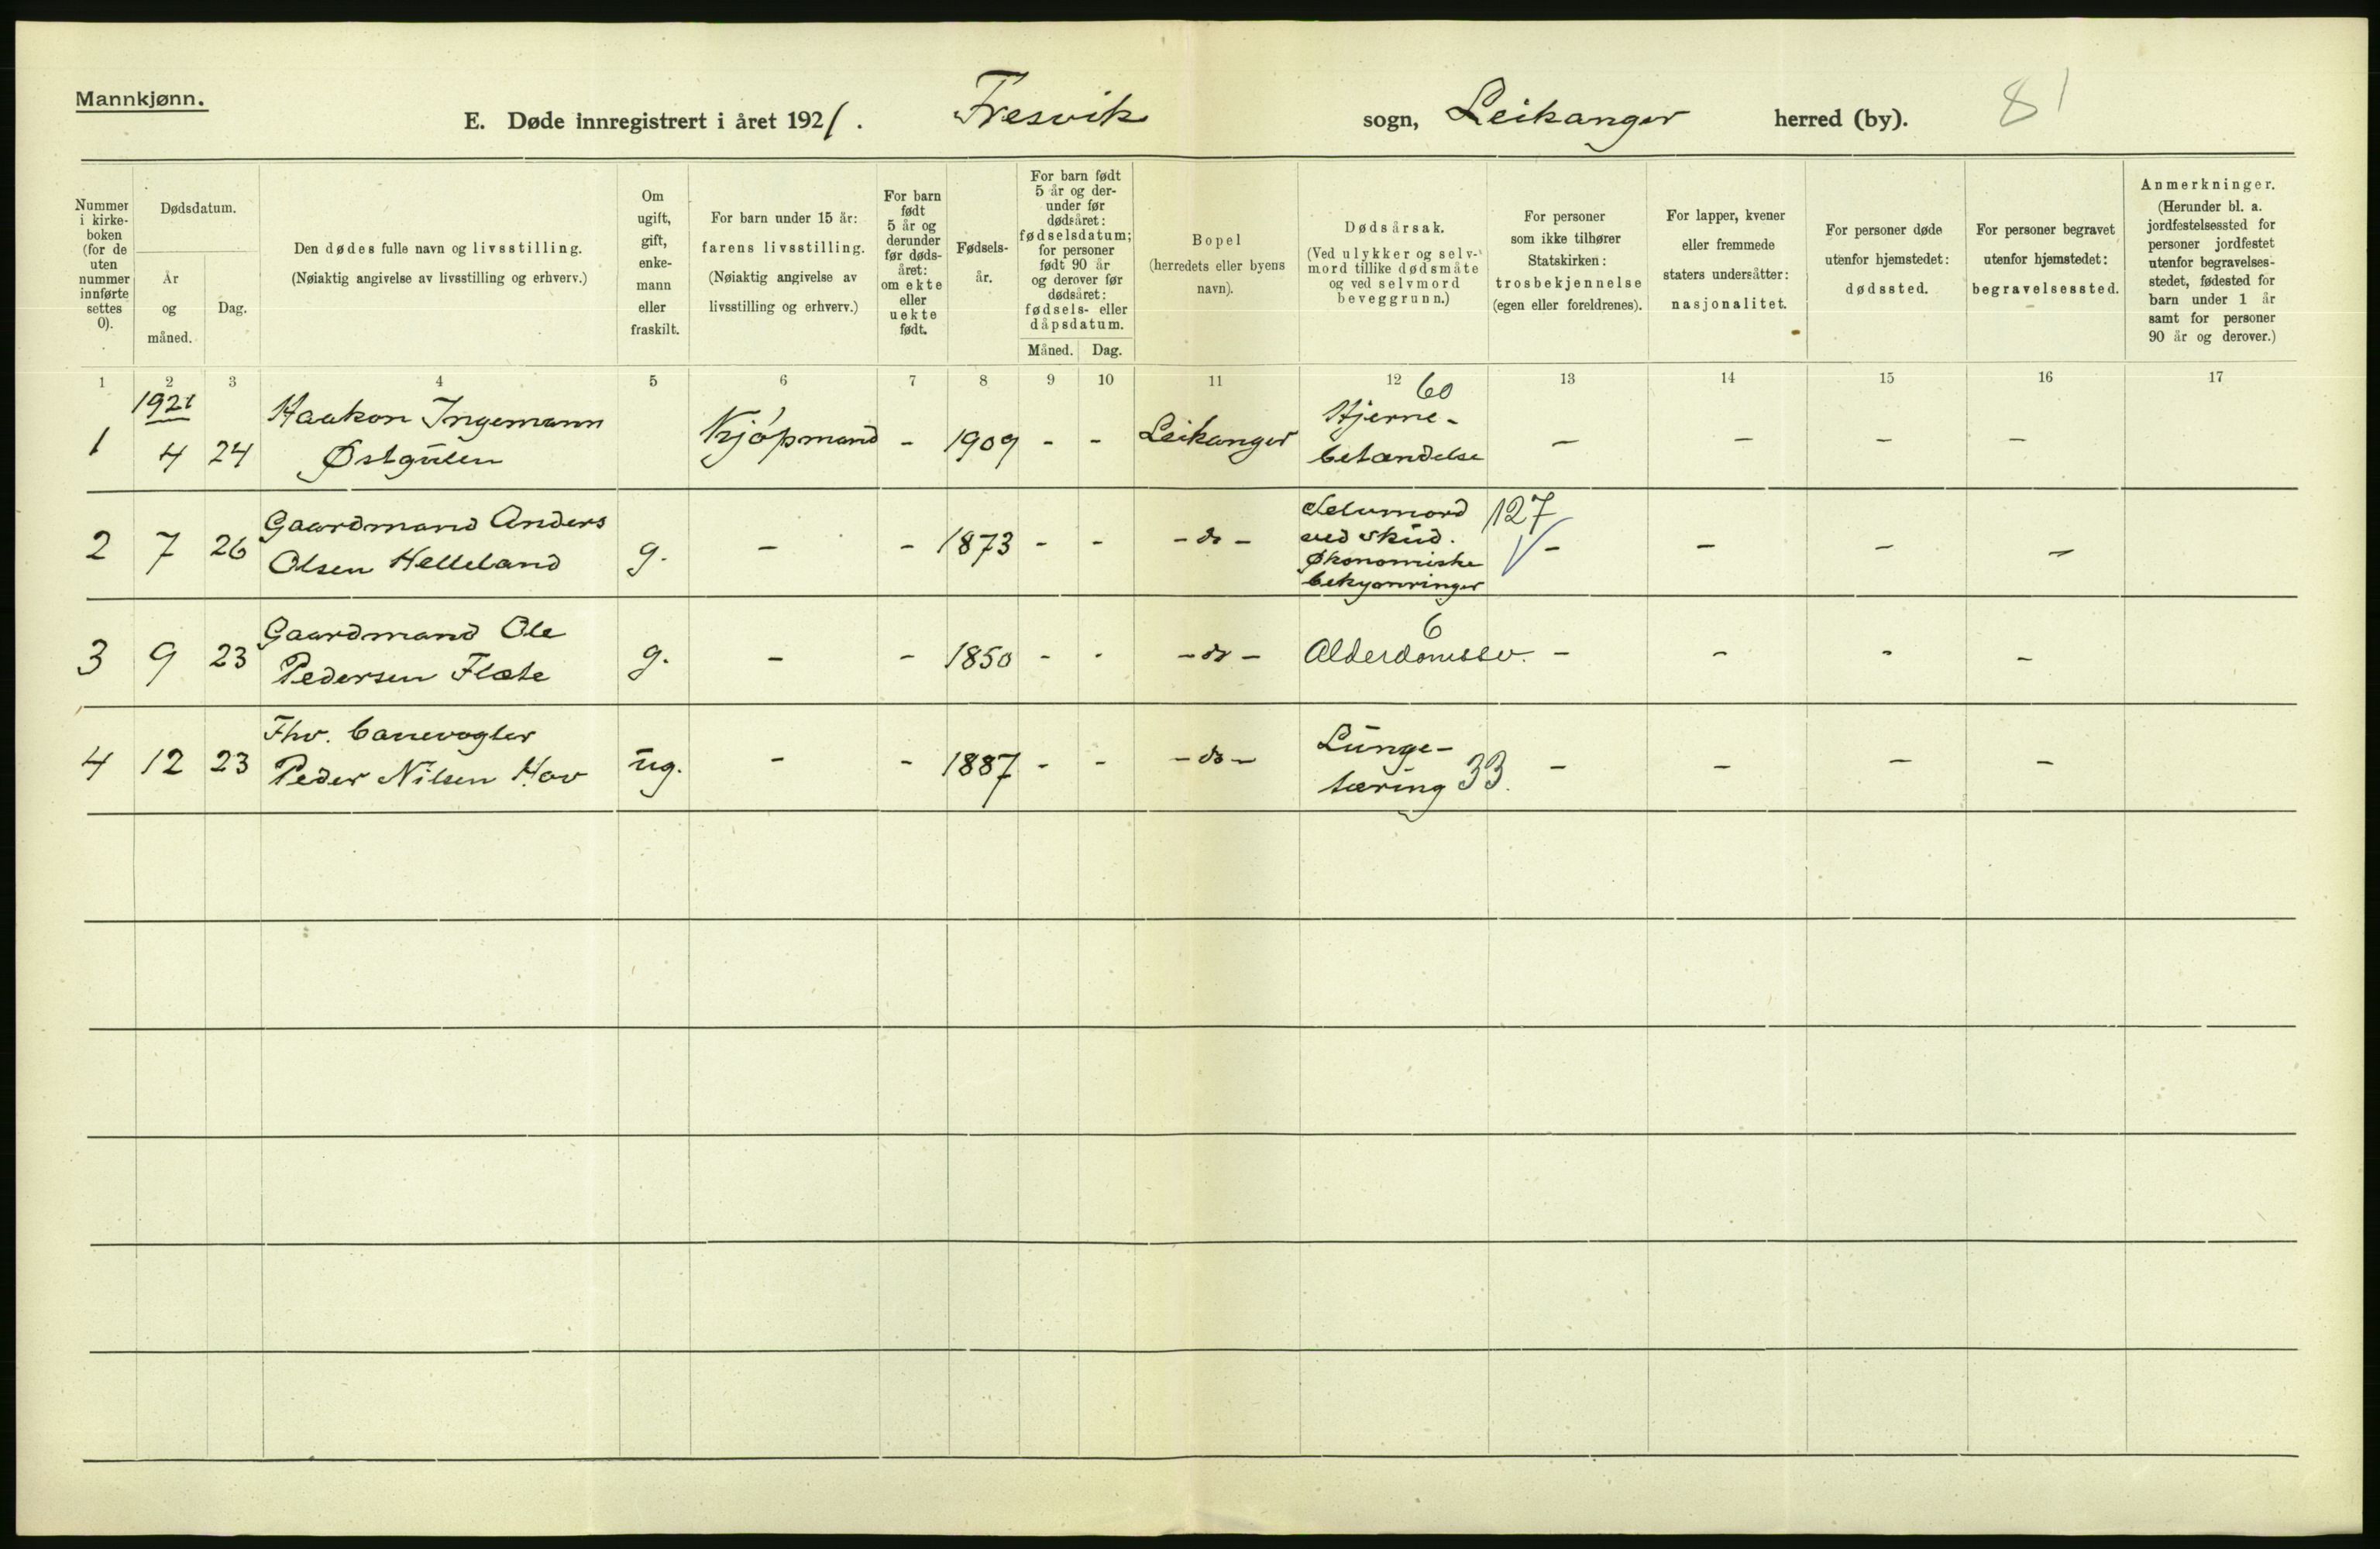 Mannkjønn.
E. Døde innregistrert i året 1921. Fresvik sogn, Leikanger herred (by). 81
Nummer i kirke- boken (for de uten nummer innførte settes 0).
Dødsdatum.
År og måned.
Dag.
Den dødes fulle navn og livsstilling.
(Nøiaktig angivelse av livsstilling og erhverv.)
Om ugift, gift, enke- mann eller fraskilt.
For barn under 15 år:
farens livsstilling.
(Nøiaktig angivelse av
livsstilling og erhverv.)
For barn født 5 år og derunder før døds- året: om ekte eller uekte født.
Fødsels- år.
For barn født 5 år og der- under før dødsåret: fødselsdatum; for personer født 90 år og derover før dødsåret: fødsels- eller dåpsdatum.
Måned. Dag.
Bopel
(herredets eller byens
navn).
Dødsårsak.
(Ved ulykker og selv-
mord tillike dødsmåte
og ved selvmord
beveggrunn.)
For personer
som ikke tilhører
Statskirken:
trosbekjennelse
(egen eller foreldrenes).
For lapper, kvener
eller fremmede
staters undersåtter:
nasjonalitet.
For personer døde
utenfor hjemstedet:
dødssted.
For personer begravet
utenfor hjemstedet:
begravelsessted.
Anmerkninger.
(Herunder bl. a.
jordfestelsessted for
personer jordfestet
utenfor begravelses-
stedet, fødested for
barn under 1 år
samt for personer
90 år og derover.)
1 2 3 4 5 6 7 8 9 10 11 12 13 14 15 16 17
1921 Haakon Ingemann 60 Hjerne-
1 4 24 Østgulen Kjøpmand - 1909 - - Leikanger betændelse - - - -
Gaardmand Anders Selvmord 127
2 7 26 Olsen Helleland g. - - 1873 - - - do - ved skud. - - - -
Økonomiske
bekymringer
Gaardmand Ole 6
3 9 23 Pedersen Flæte g. - - 1850 - - - do - Alderdomssv. - - - -
Fhv. banevogter Lunge-
4 12 23 Peder Nilsen Hov ug. - - 1887 - - - do - tæring 33. - - - -